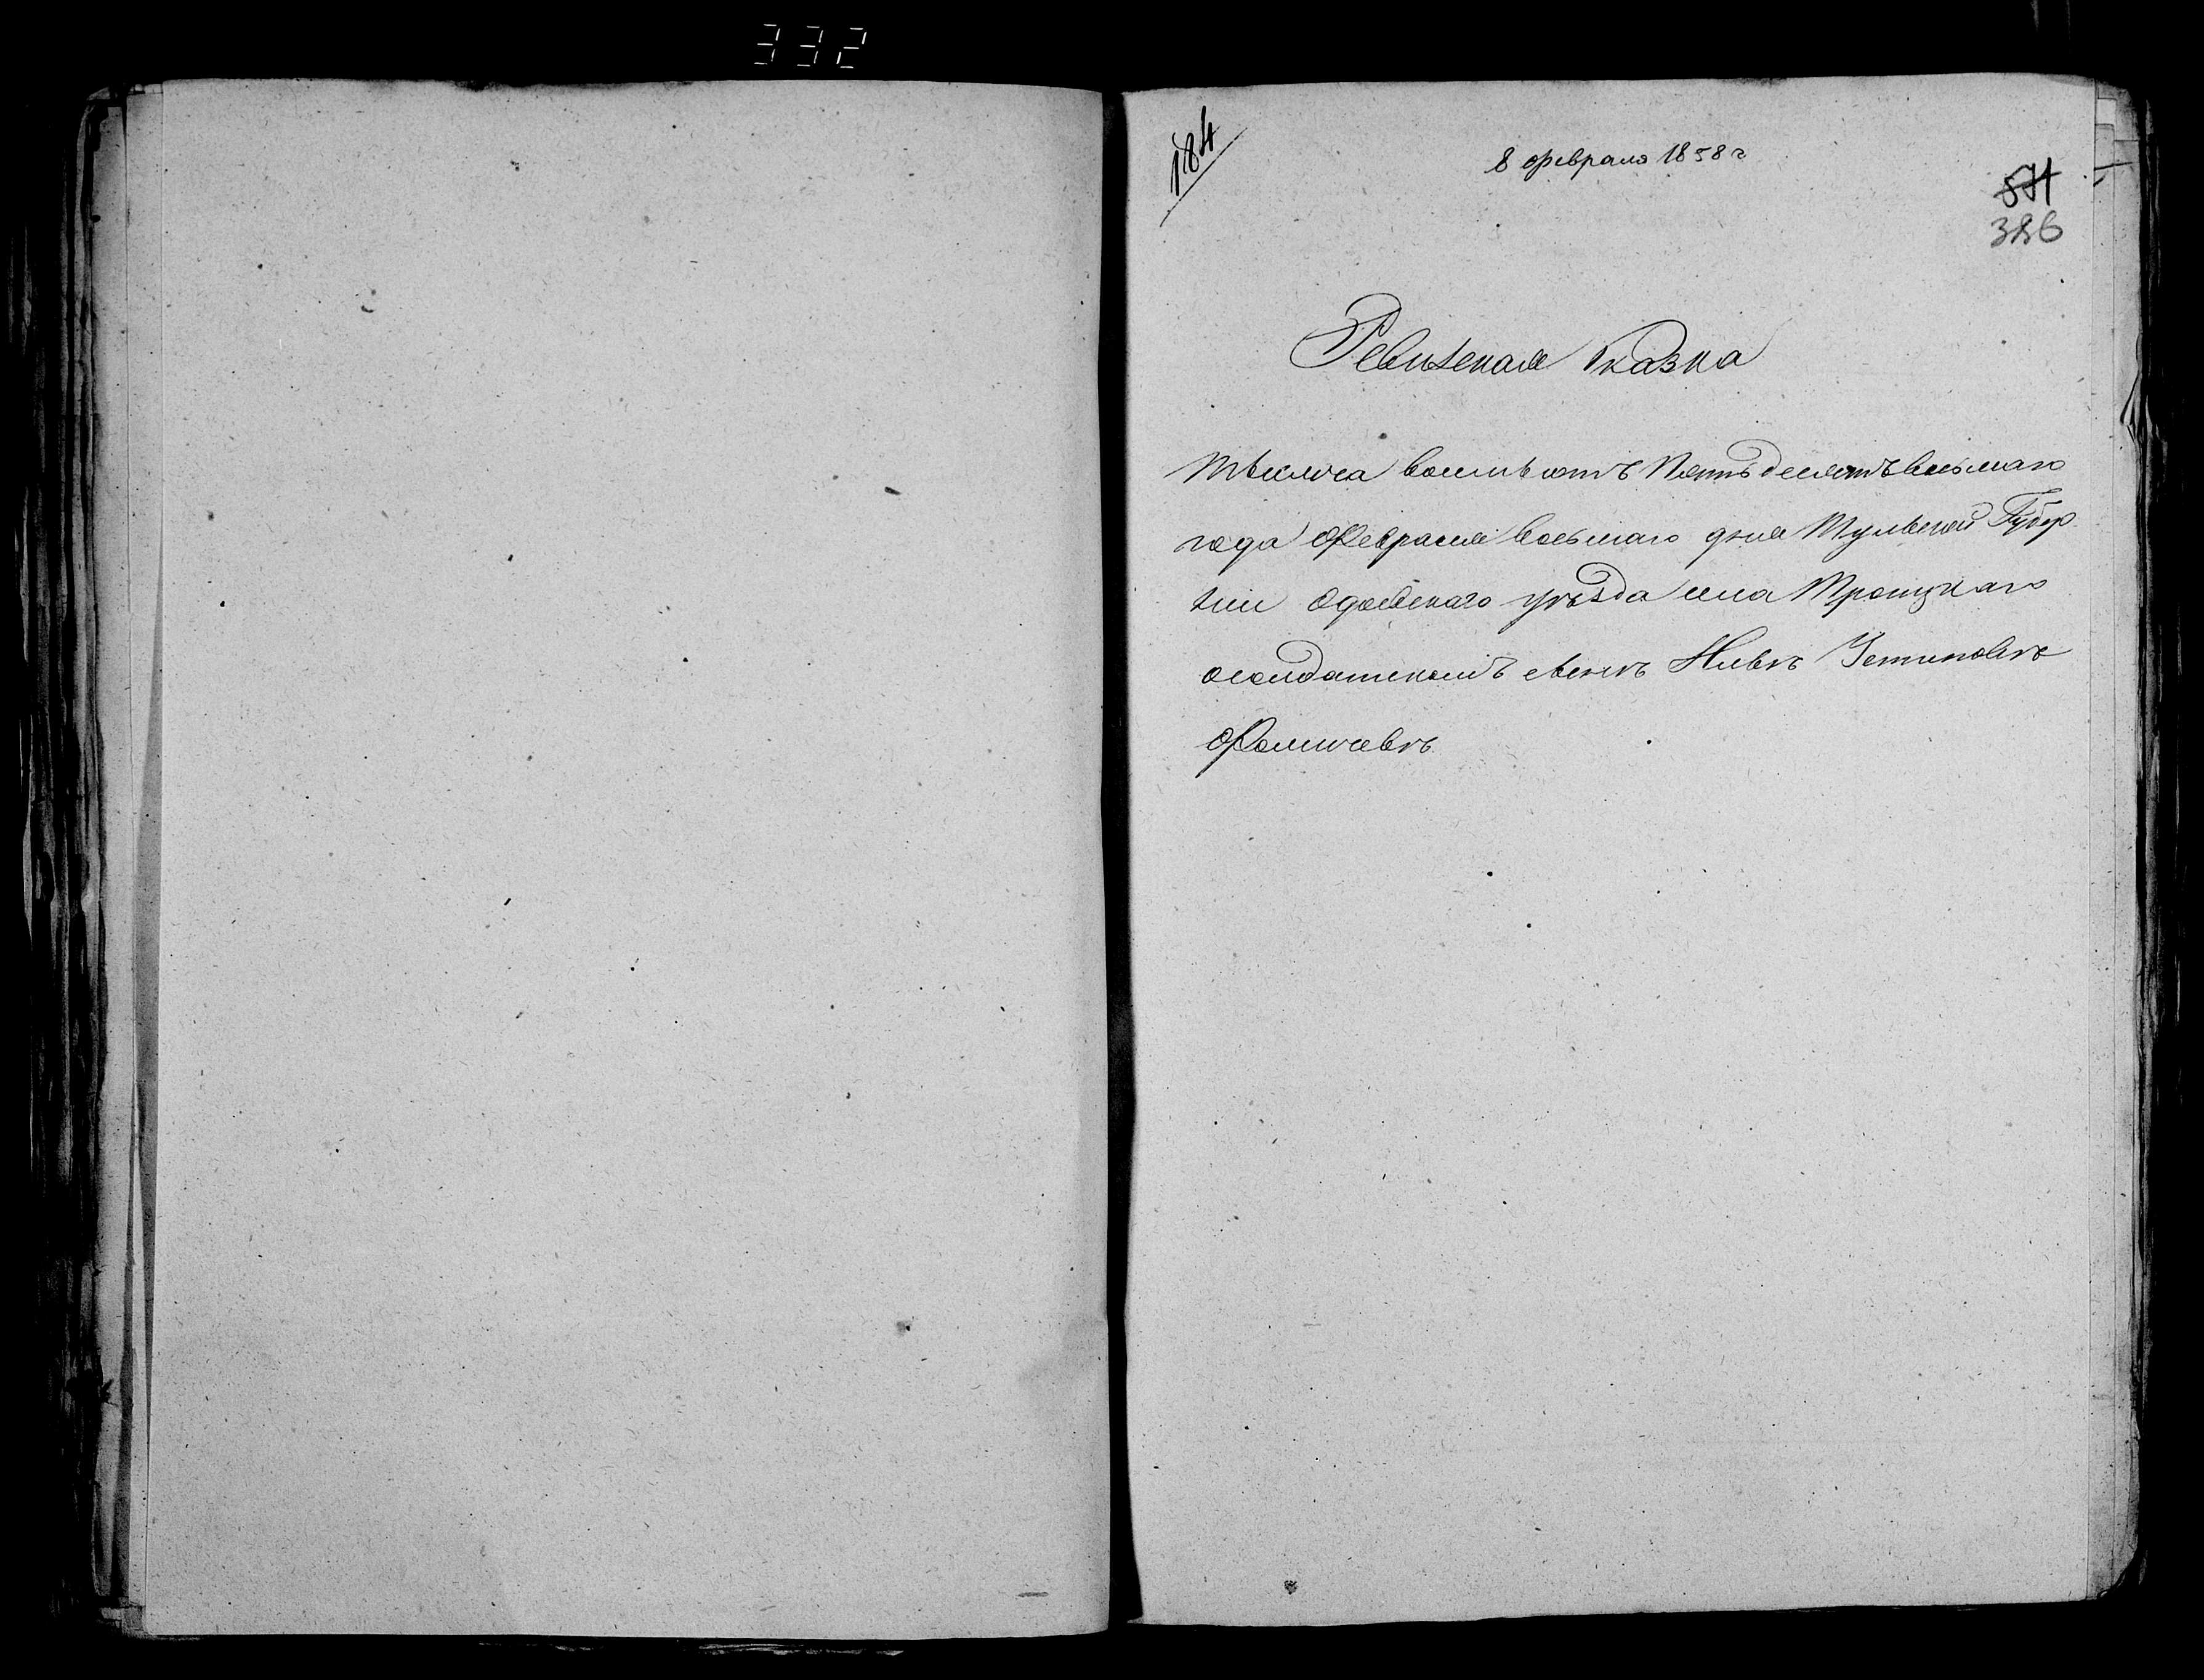 332
184
8 февраля 1858 г
571
386
Ревизская сказка
Тысяча восемьсотъ Пятьдесятъ восьмаго
года Февраля восьмаго дня Тульской Губер
нии Одоевскаго уѣзда села Троицкаго
осолдатскомъ сынѣ Устиновѣ
Фомичевѣ